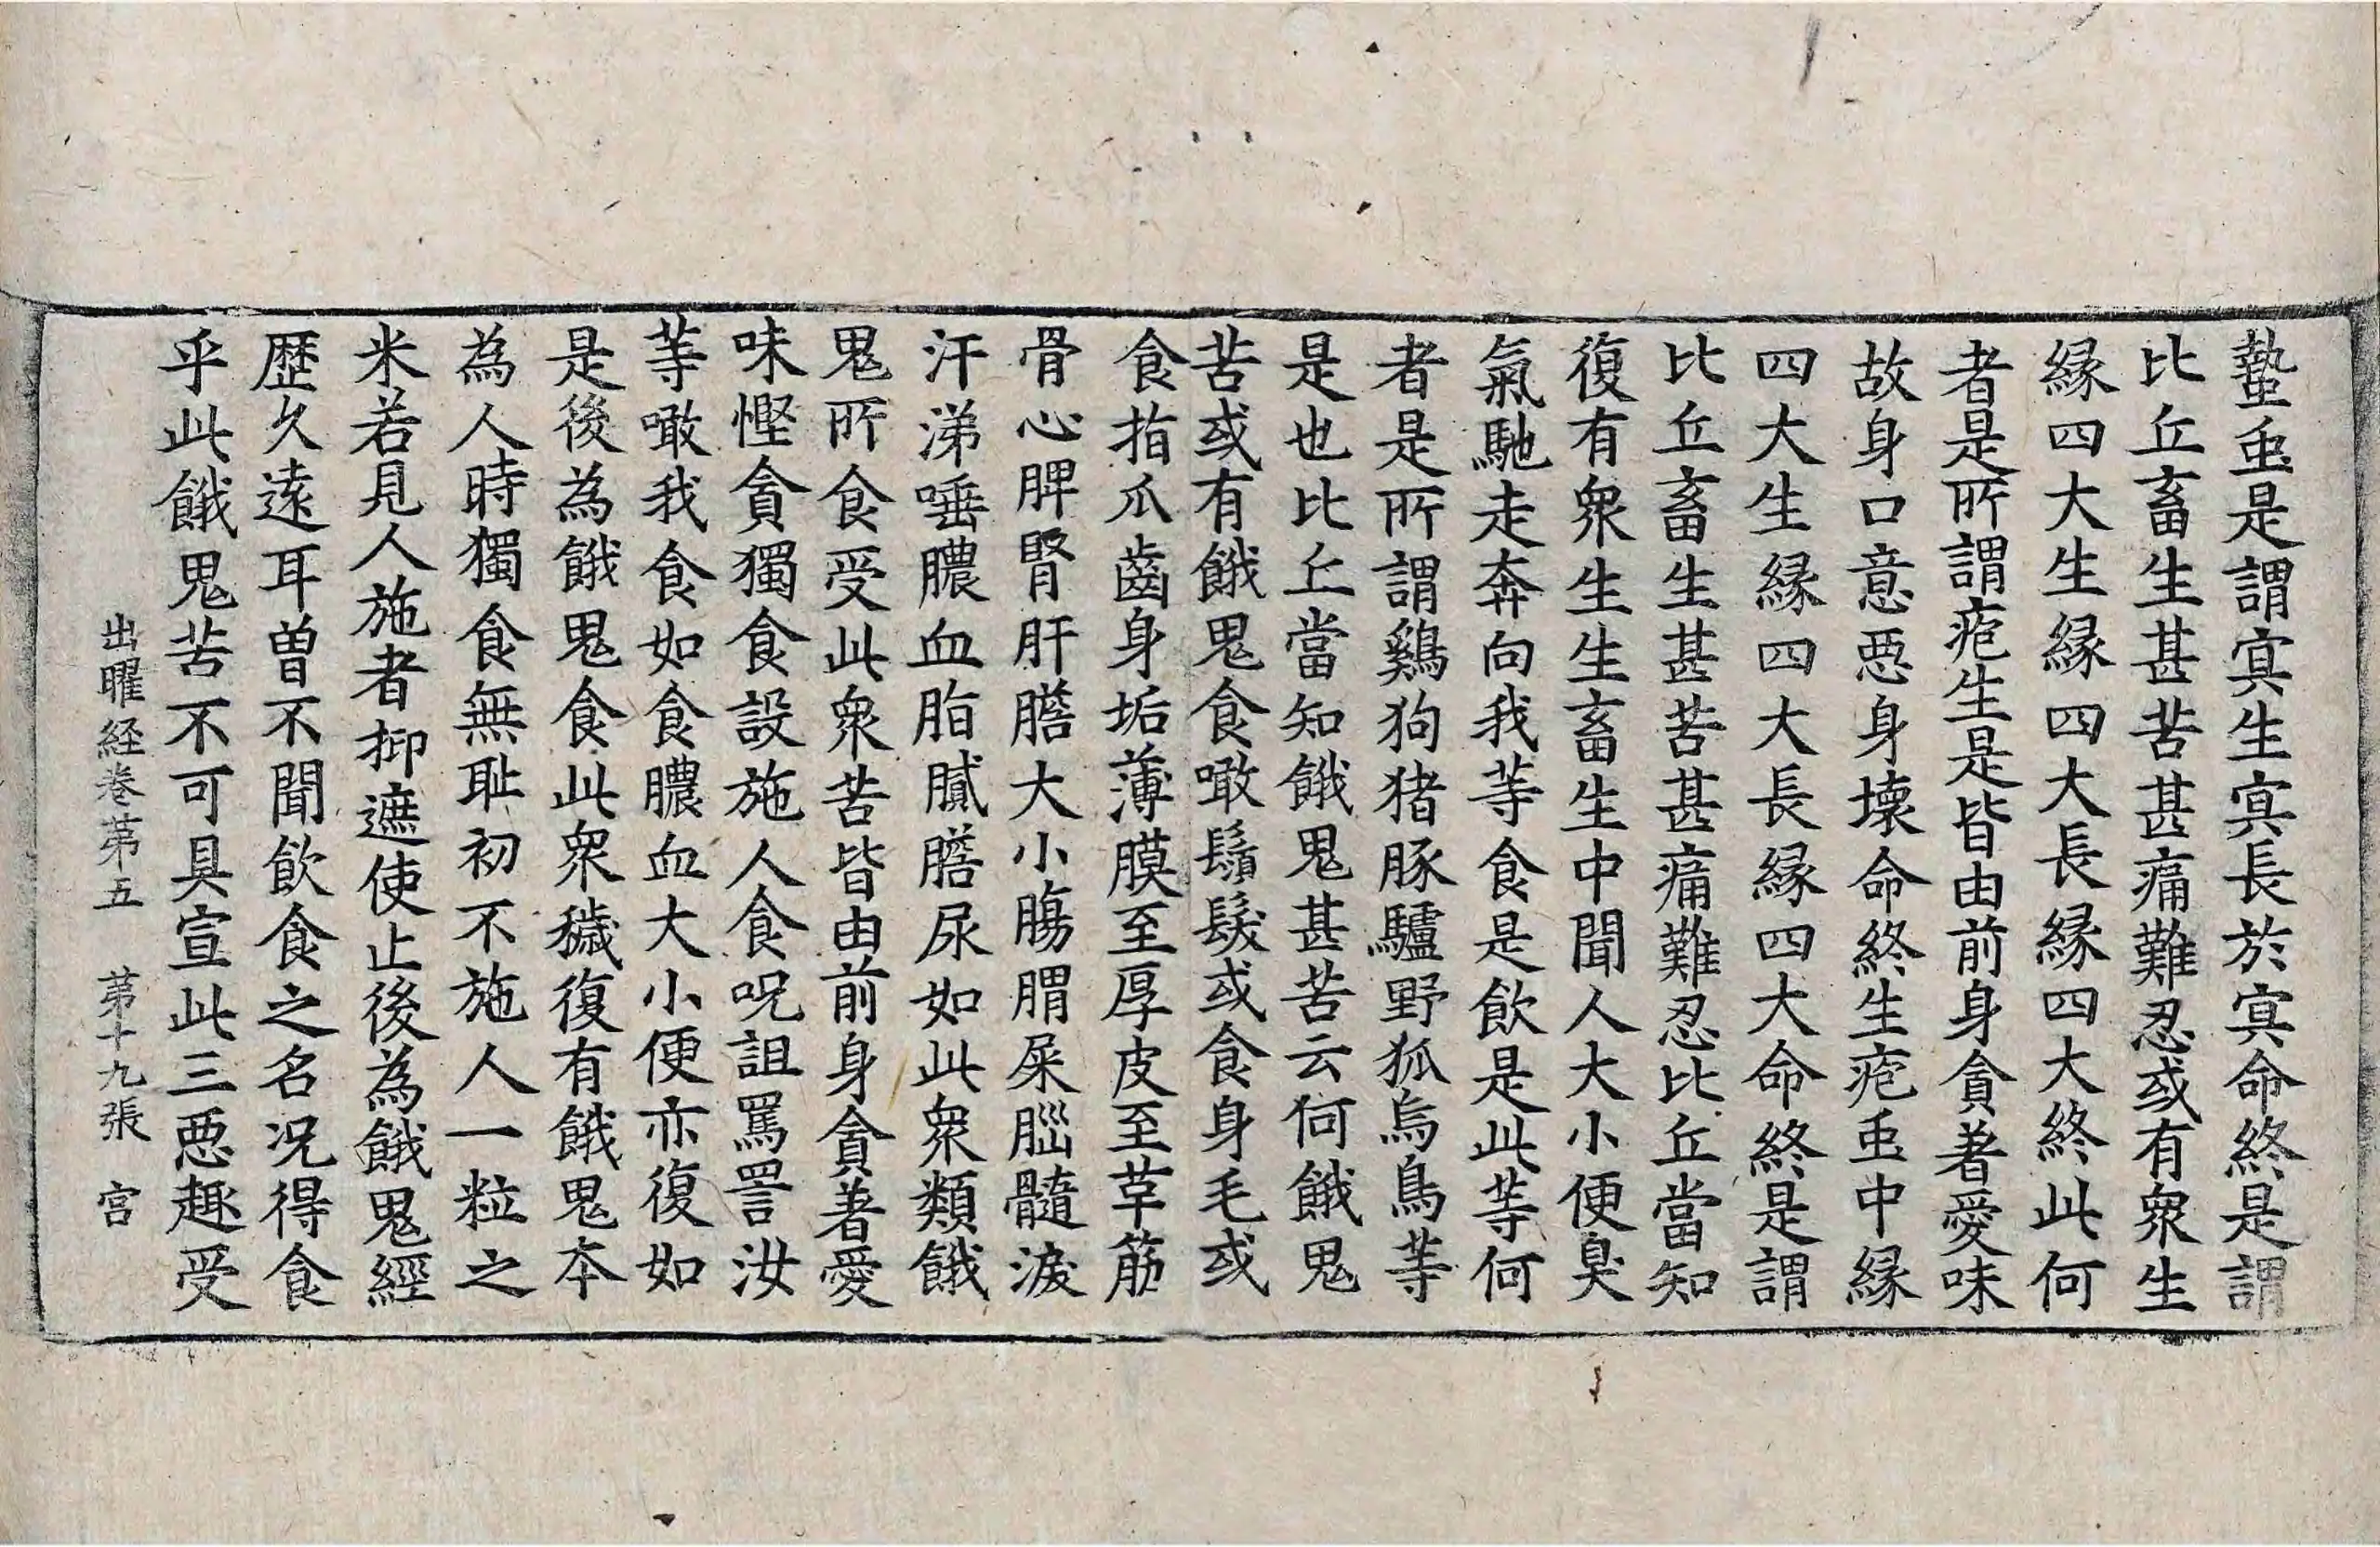 蟄䖝是謂㝠生㝠長於㝠命終是謂
比丘畜生甚苦甚痛難忍或有衆生
縁四大生縁四大長縁四大終此何
者是所謂疱生是皆由前身貪著愛味
故身口意惡身壞命終生疱䖝中縁
四大生縁四大長縁四大命終是謂
比丘畜生甚苦甚痛難忍比丘當知
復有衆生生畜生中聞人大小便臭
氣馳走奔向我等食是飲是此等何
者是所謂鷄狗猪豚驢野狐烏鳥等
是也比丘當知餓鬼甚苦云何餓鬼
苦或有餓鬼食噉鬚髮或食身毛或
食指爪齒身垢薄膜至厚皮至革筋
骨心脾腎肝膽大小膓胃屎腦髓淚
汗涕唾膿血脂膩膽尿如此衆類餓
鬼所食受此衆苦皆由前身貪著愛
味慳貪獨食設施人食呪詛罵詈汝
等噉我食如食膿血大小便亦復如
是後為餓鬼食此衆穢復有餓鬼本
為人時獨食無耻初不施人一粒之
米若見人施者抑遮使止後為餓鬼經
歷久遠耳曽不聞飲食之名况得食
乎此餓鬼苦不可具宣此三惡趣受
出曜経巻苐五　苐十九張　宫